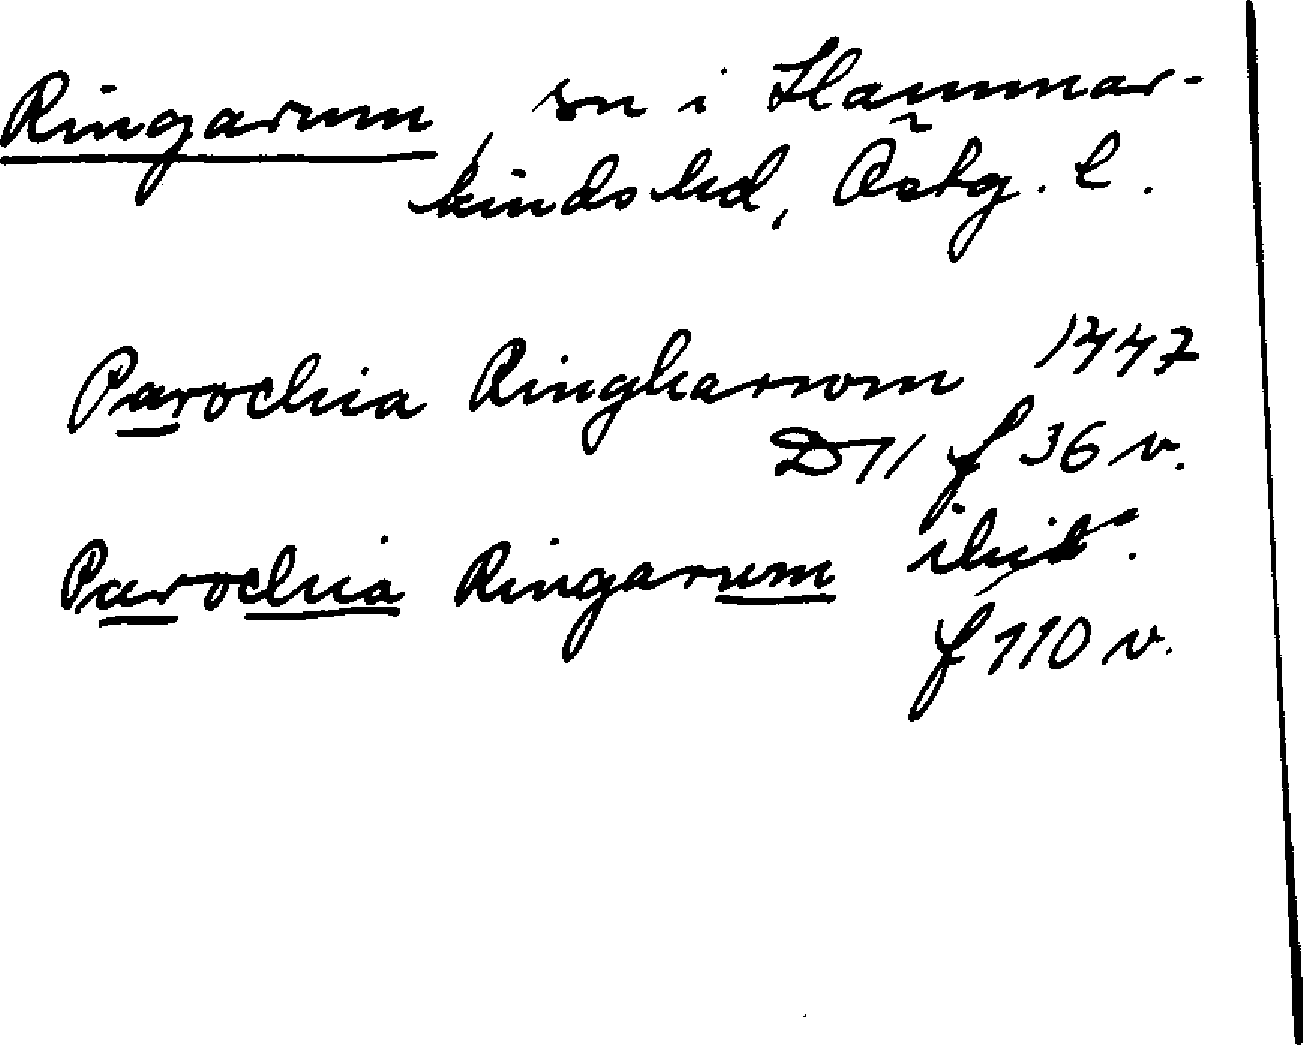 Ringarum, sn i Hammar-
kinds hd, Östg. l.
Parochia Ringharwm 1447
D 11 f 36 v.
Parochia Ringarum ibid.
f 110 v.